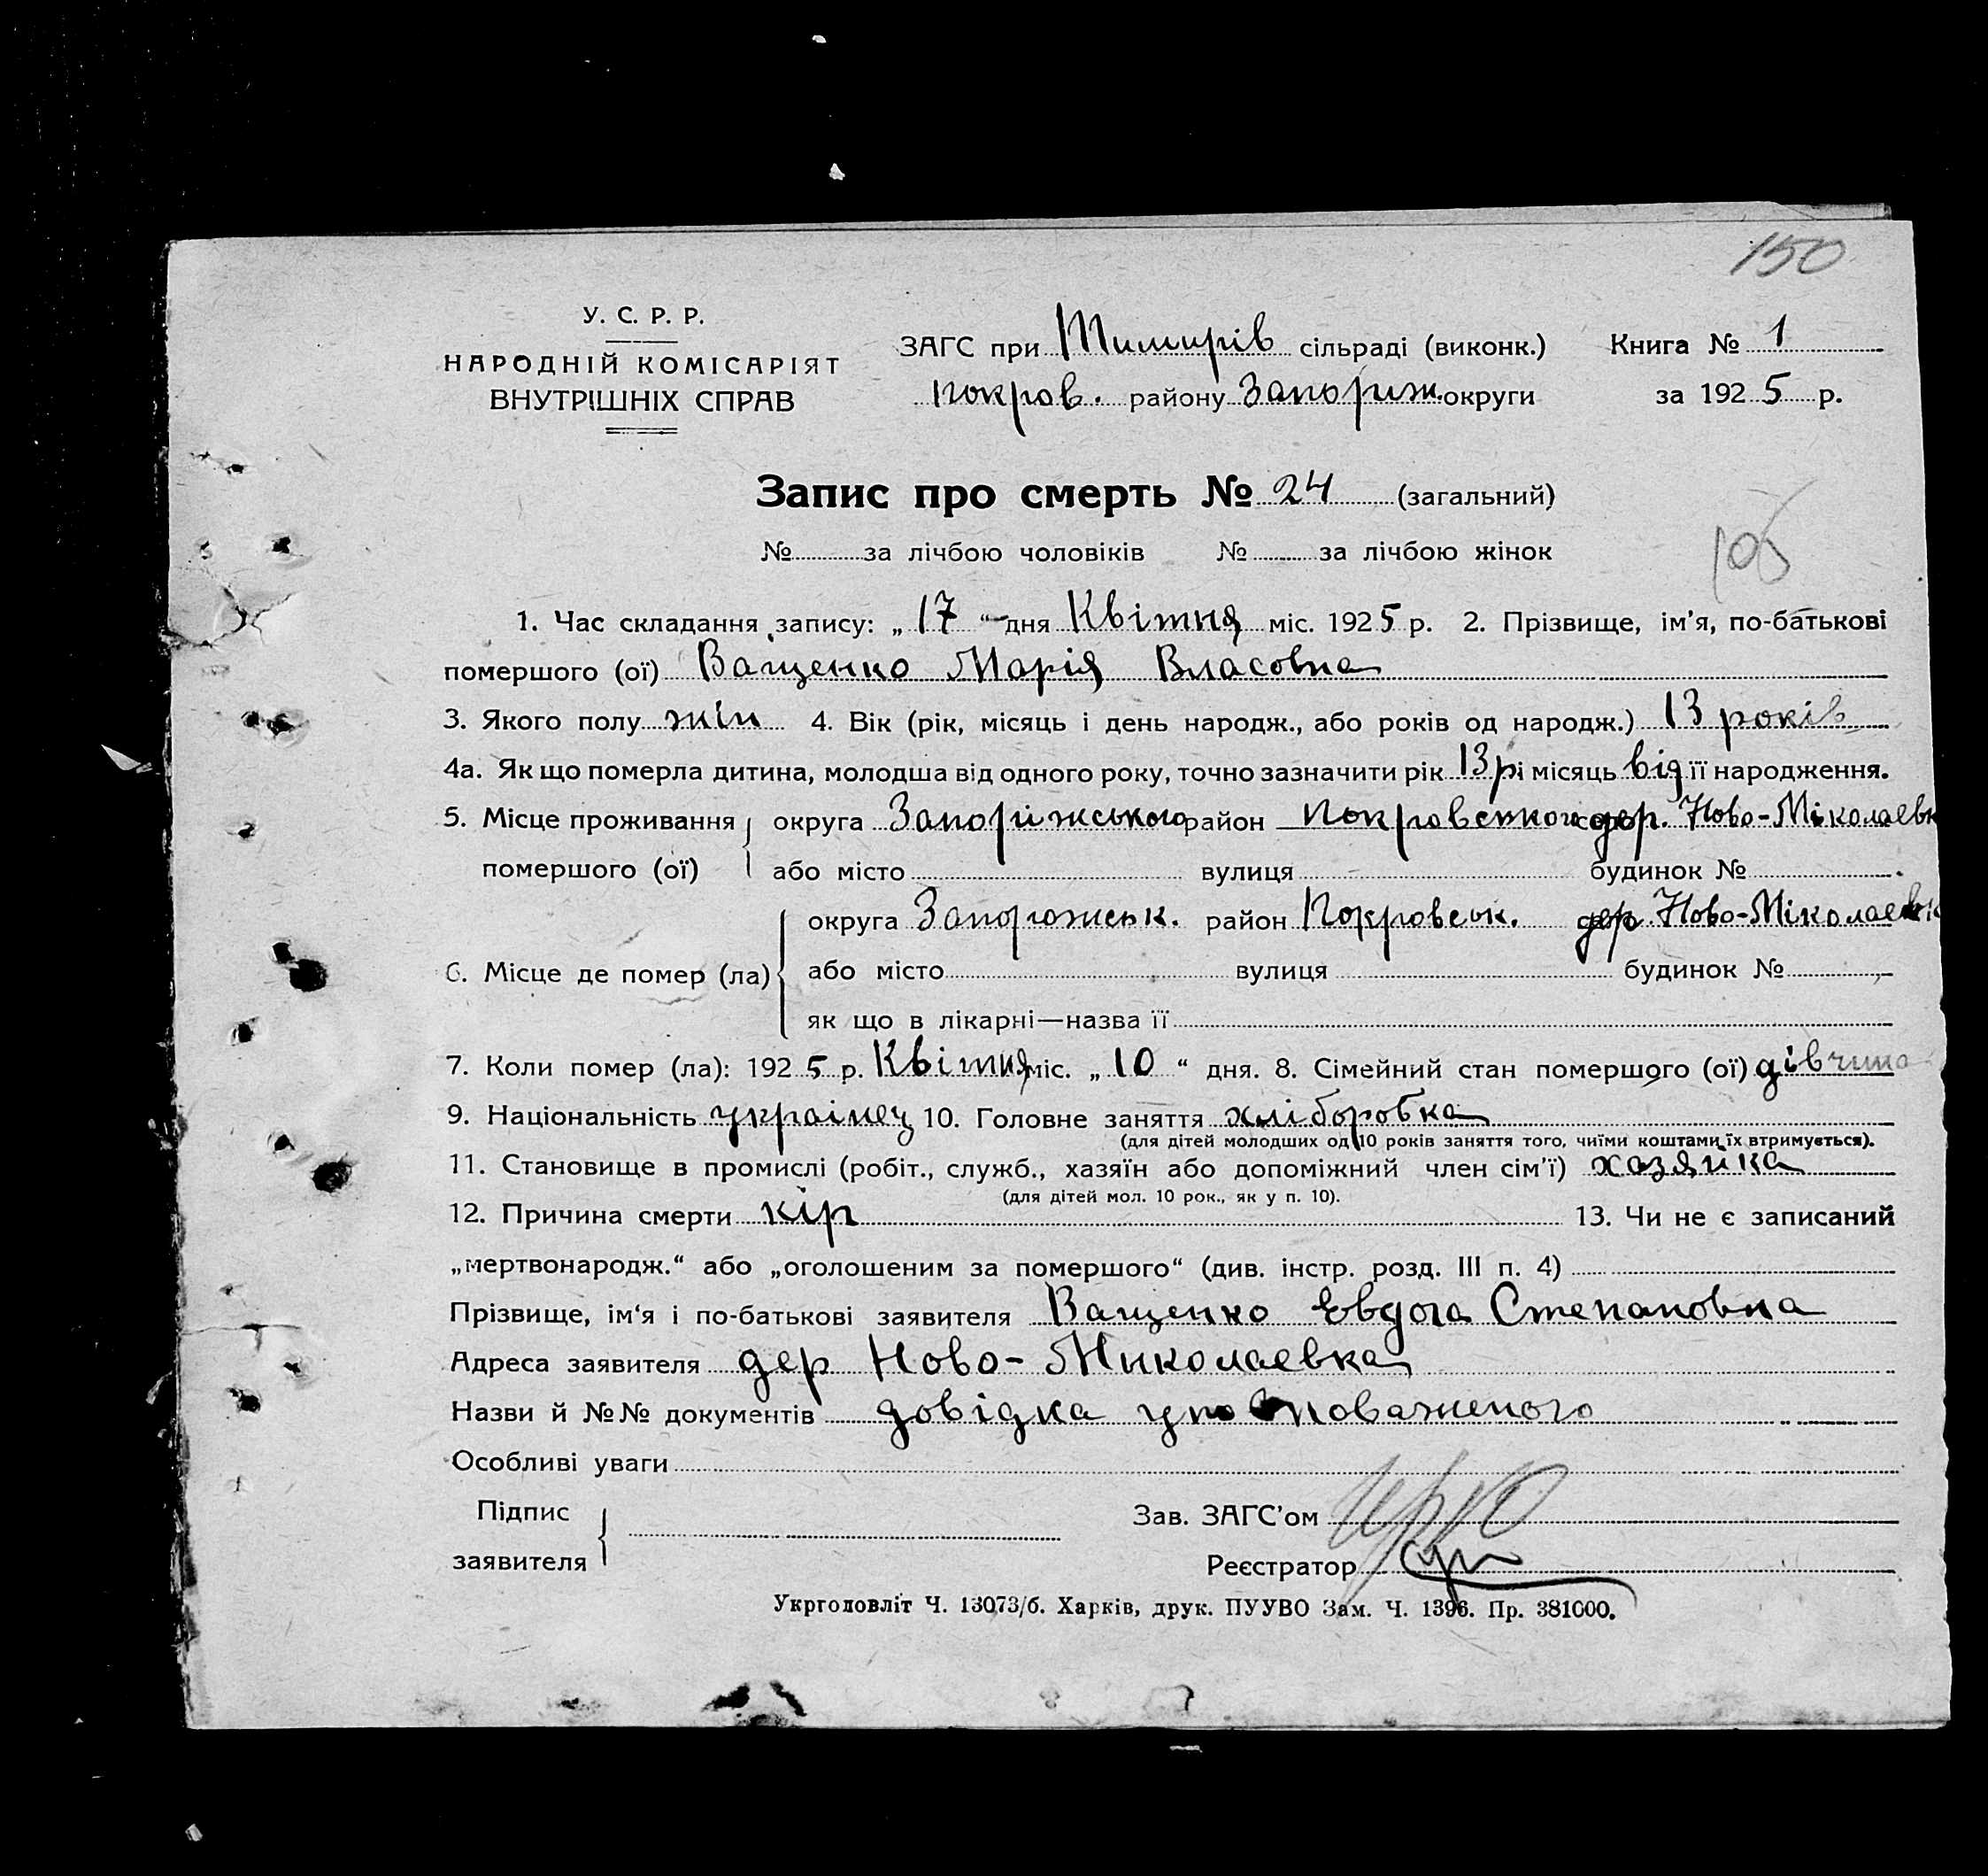 150
У. С. Р. Р.
НАРОДНІЙ КОМІСАРІЯТ
ВНУТРІШНІХ СПРАВ
ЗАГС при Тимирів сільраді (виконк.) Книга № 1
Покров. району Запориж. округи за 1925 р.
Запис про смерть № 24 (загальний)
105
№ за лічбою чоловіків № за лічбою жінок
1. Час складання запису: „17“ дня Квітня міс. 1925 р. 2. Прізвище, ім'я, по-батькові
помершого (ої) Ващенко Марія Власовна
3. Якого полу жін 4. Вік (рік, місяць і день народж., або років од народж.) 13 років
4а. Як що померла дитина, молодша від одного року, точно зазначити рік 13 р і місяць від її народження.
5. Місце проживання округа Запорижського район Покровського дер. Ново-Міколаевк
помершого (ої) або місто вулиця будинок №
округа Запорожськ. район Покровськ. дер Ново-Міколаевк
6. Місце де помер (ла) або місто вулиця будинок №
як що в лікарні—назва її
7. Коли помер (ла): 1925 р. Квітня міс. „10“ дня. 8. Сімейний стан помершого (ої) дівчина
9. Національність украінец 10. Головне заняття хліборобка
(для дітей молодших од 10 років заняття того, чиїми коштами їх втримується).
11. Становище в промислі (робіт., служб., хазяїн або допоміжний член сім'ї) хазяйка
(для дітей мол. 10 рок., як у п. 10).
12. Причина смерти кір 13. Чи не є записаний
„мертвонародж.“ або „оголошеним за помершого“ (див. інстр. розд. III п. 4)
Прізвище, ім'я і по-батькові заявителя Ващенко Евдога Степановна
Адреса заявителя дер Ново-Миколаевка
Назви й №№ документів довідка уповноваженого
Особливі уваги
Підпис
заявителя
Зав. ЗАГС'ом
Реєстратор
Укрголовліт Ч. 13073/б. Харків, друк. ПУУВО Зам. Ч. 1396. Пр. 381000.